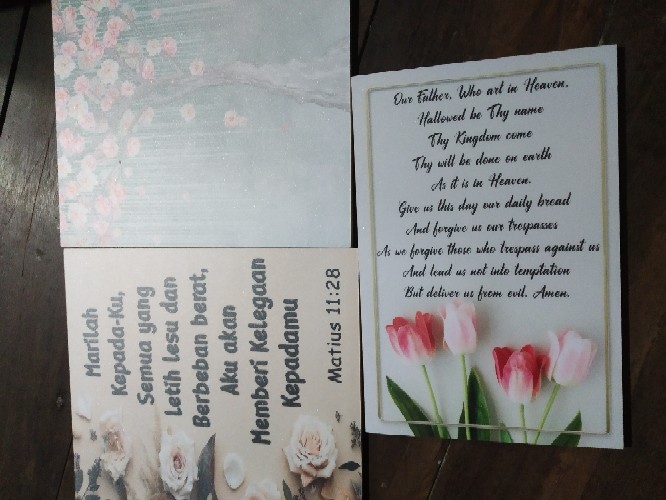 Our Father, Who art in Heaven.
Hallowed be Thy name
Thy Kingdom come
Thy will be done on earth
As it is in Heaven.
Give us this day our daily bread
And forgive us our trespasses
As we forgive those who trespass against us
And lead us not into temptation
But deliver us from evil. Amen.
Marilah
Kepada-Ku,
Semua yang
Letih Lesu dan
Berbeban berat,
Aku akan
Memberi Kelegaan
Kepadamu
Matius 11:28